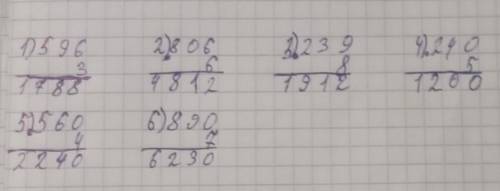 1) 596 2) 806 3) 239 4) 240
3 6 8 5
1788 4812 1912 1200
5) 560 6) 890
4 7
2240 6230